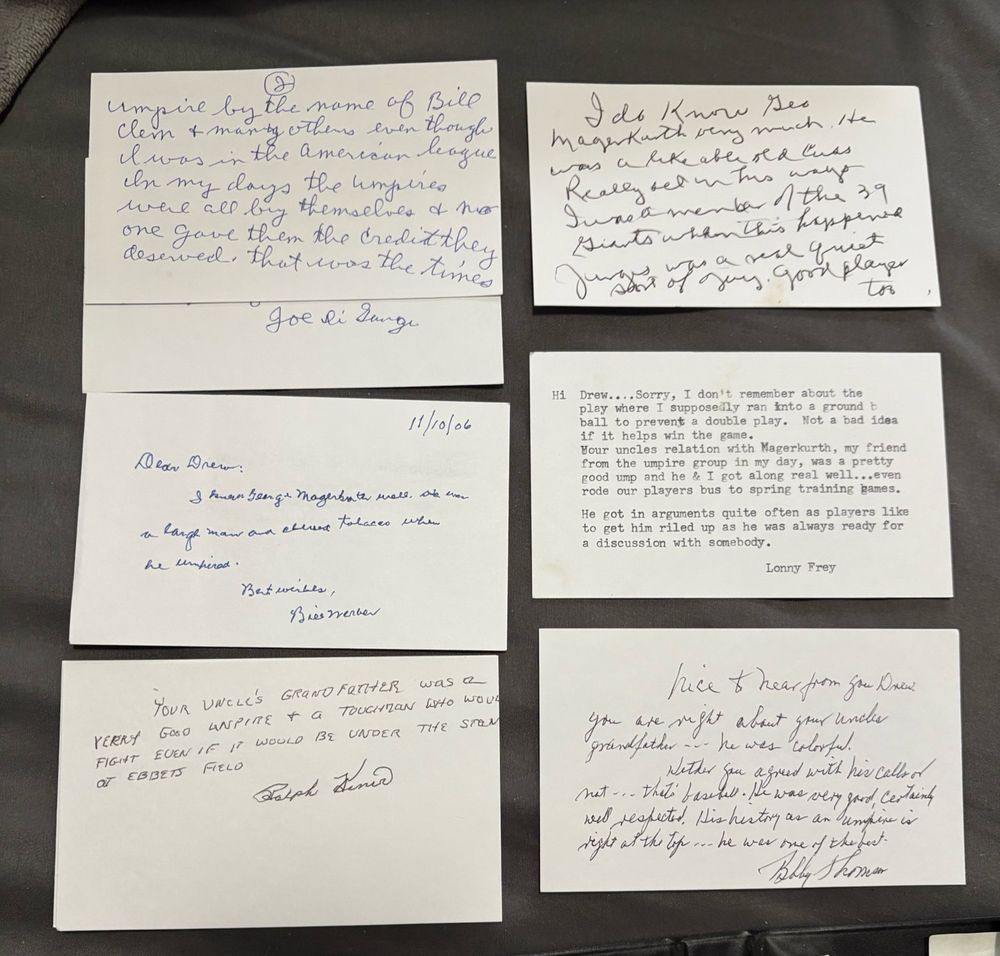 ②
umpire by the name of Bill
Clem + many others even though
I was in the American league
In my days the umpires
were all by themselves & no
one gave them the credit they
deserved. that was the times
Joe Di
11/10/06
Dear Drew:
I knew George Magerkurth well. He was
a large man and chewed tobacco when
he umpired.
Best wishes,
Bill Werber
YOUR UNCLE'S GRANDFATHER WAS A
VERRY GOOD UMPIRE & A TOUGHMAN WHO WOUL
FIGHT EVEN IF IT WOULD BE UNDER THE STAN
AT EBBETS FIELD
Ralph Kiner
I do Know Geo
Magerkurth very much. He
was a likeable old Cuss
Really set in his ways
I was a member of the 39
Giants when this happened
Jurges was a real quiet
sort of guy. Good player
too.
Hi Drew....Sorry, I don't remember about the
play where I supposedly ran into a ground b
ball to prevent a double play. Not a bad idea
if it helps win the game.
Your uncles relation with Magerkurth, my friend
from the umpire group in my day, was a pretty
good ump and he & I got along real well...even
rode our players bus to spring training games.
He got in arguments quite often as players like
to get him riled up as he was always ready for
a discussion with somebody.
Lonny Frey
Nice to hear from you Drew.
You are right about your uncles
grandfather --- he was colorful.
Wether you agreed with his calls or
not --- that's baseball. He was very good, certainly
well respected. His history as an umpire is
right at the top --- he was one of the best.
Bobby Thomson